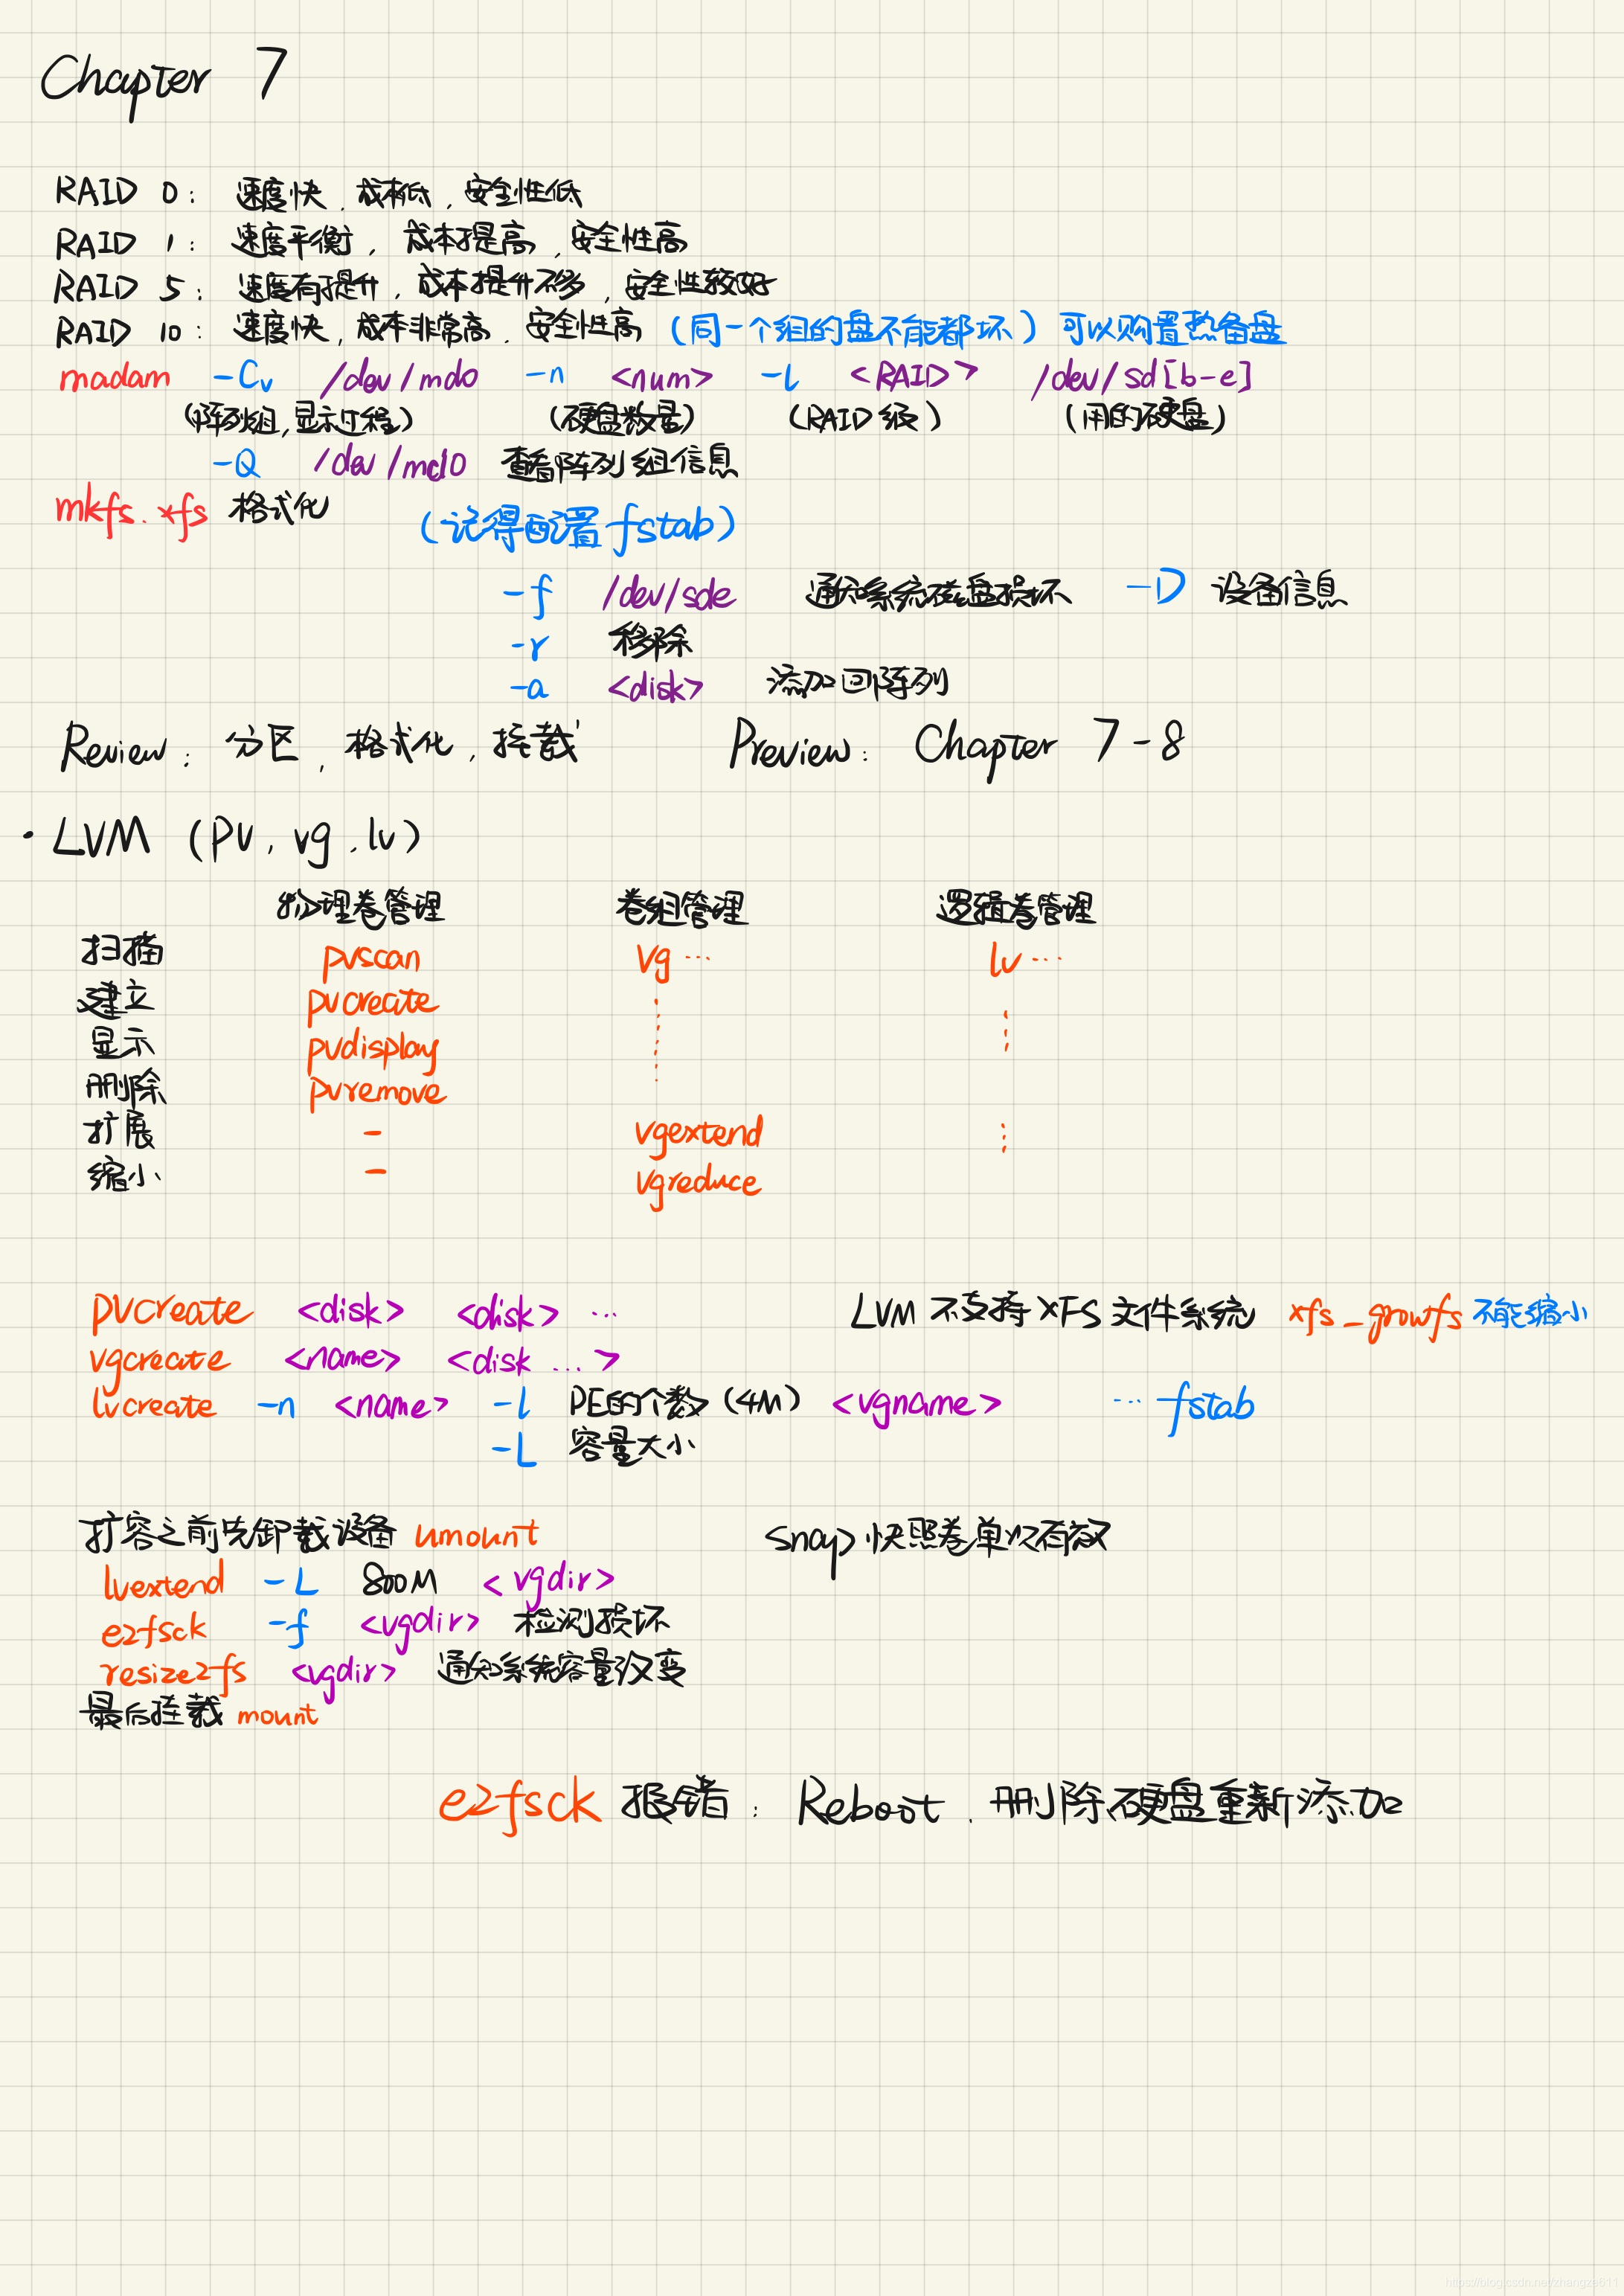 Chapter 7
RAID 0: 速度快, 成本低, 安全性低
RAID 1: 速度平衡, 成本提高, 安全性高
RAID 5: 速度有提升, 成本提升不多, 安全性较好
RAID 10: 速度快, 成本非常高, 安全性高 (同一个组的盘不能都坏) 可以购置热备盘
madam -Cv /dev/md0 -n <num> -l <RAID> /dev/sd[b-e]
(阵列组,显示过程) (硬盘数量) (RAID级) (用的硬盘)
-Q /dev/md0 查看阵列组信息
mkfs.xfs 格式化
(记得配置fstab)
-f /dev/sde 通知系统磁盘损坏 -D 设备信息
-r 移除
-a <disk> 添加回阵列
Review: 分区, 格式化, 挂载 Preview: Chapter 7-8
· LVM (pv, vg, lv)
物理卷管理 卷组管理 逻辑卷管理
扫描 pvscan vg… lv…
建立 pvcreate
显示 pvdisplay
删除 pvremove
扩展 - vgextend
缩小 - vgreduce
pvcreate <disk> <disk> … LVM 不支持XFS文件系统 xfs_growfs 不能缩小
vgcreate <name> <disk …>
lvcreate -n <name> -l PE的个数(4M) <vgname> … fstab
-L 容量大小
扩容之前先卸载设备 umount snap快照卷单次有效
lvextend -L 800M <vgdir>
e2fsck -f <vgdir> 检测损坏
resize2fs <vgdir> 通知系统容量改变
最后挂载 mount
e2fsck 报错: Reboot, 删除硬盘重新添加